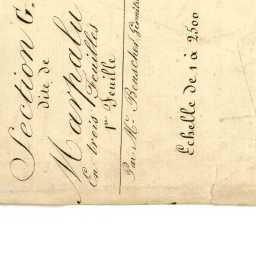 Section G.
dite de
Marpalu
En trois Feuilles
1re Feuille
Par Mr. Beusches Géomètre
Echelle de 1 à 2500